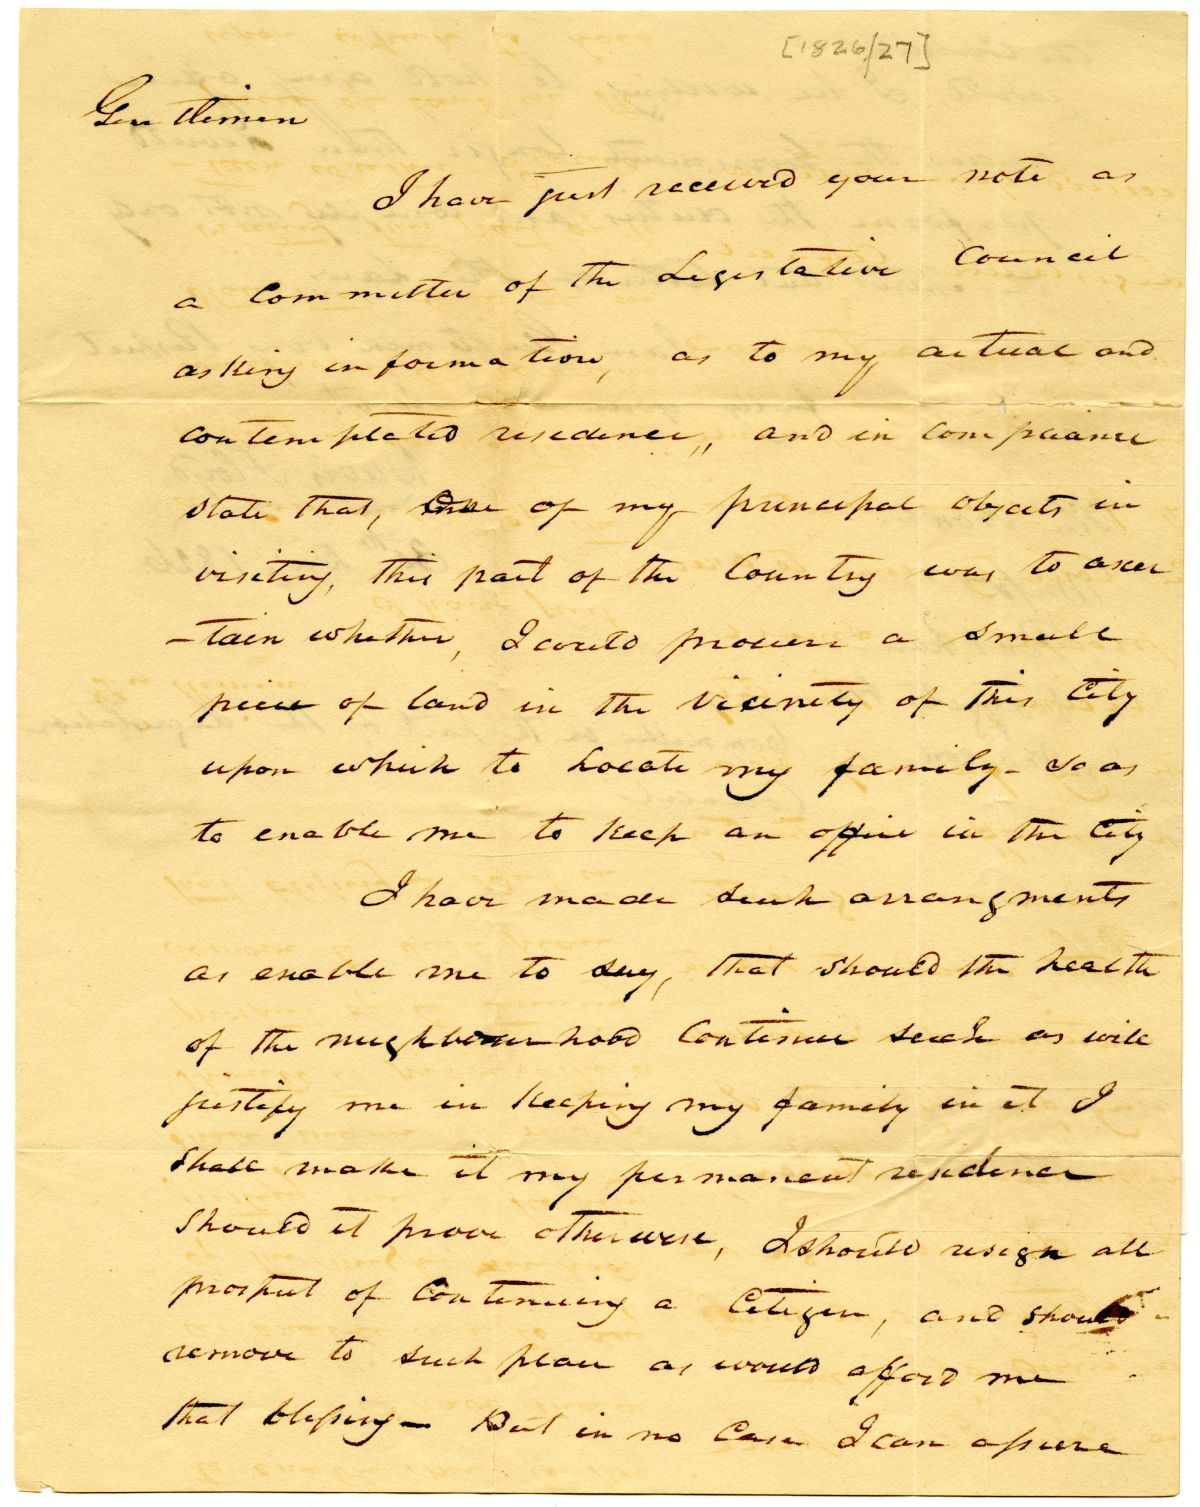 [1826/27]
Gentlemen
I have just received your note as
a Committee of the Legistative Council
asking information, as to my actual and
contemplated residence,, and in compliance
state that, One of my principal objects in
visiting, this part of the Country was to ascer
-tain whether, I could procure a small
piece of land in the vicinity of this City
upon which to Locate my family - so as
to enable me to keep an office in the City
I have made such arrangments
as enable me to say, that should the health
of the neighbourhood Continue such as will
justify me in keeping my family in it I
shall make it my permanent residence
should it prove otherwise, I should resign all
prospect of Continuing a Citizen, and should
remove to such place as would afford me
that blessing - But in no Case I can assure